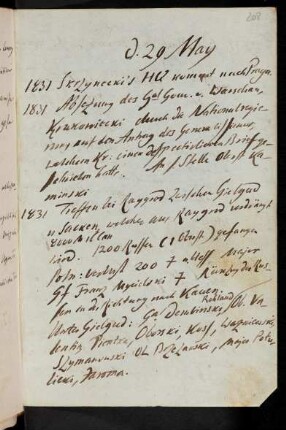 d. 29 May
1831 Skrzynecki's HQ kommt nach Praga.
1831 Absetzung des Gen Gouv. v. Warschau,
Krukowiecki durch die Nationalregie-
rung auf den Antrag des Generalissimus
welchem Kr. einen despectirlichen Brief ge-
schrieben hatte. An s Stelle Obrst Ka-
minski
1831 Treffen bei Raygrod zwischen Gielgud
u Sacken, welcher aus Raygrod verdrängt
wird. 1200 Russen (1 Obrst) gefangen
Poln: Verlust 200 Major
Gf Franz Mycielski † Rückzug der Rus-
sen in der Richtung nach Kauen.
Unter Gielgud: Ge Dembinski, Roland
Pientka, Oborski, Koss,
Szymanowski, Major Potu-
licki, Jaroma.